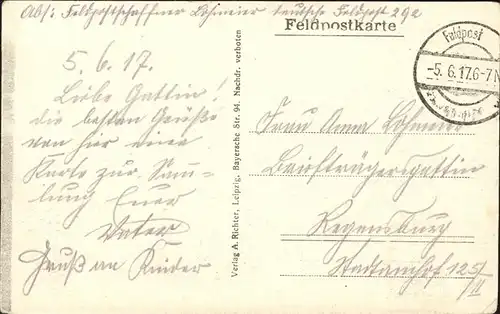 Abs: Feldpostschaffner Lohmeier deutsche Feldpost 292
Feldpostkarte
Feldpost
-5.6.17.6-7N
5.6.17.
Liebe Gattin!
die besten Grüße
von hier eine
Karte zur Samm-
lung Euer
Vater
Gruß an Kinder
Verlag A. Richter, Leipzig, Bayersche Str. 94. Nachdr. verboten
Frau Anna Lohmeier
Briefträgersgattin
Regensburg
Stadtamhof 125/
II